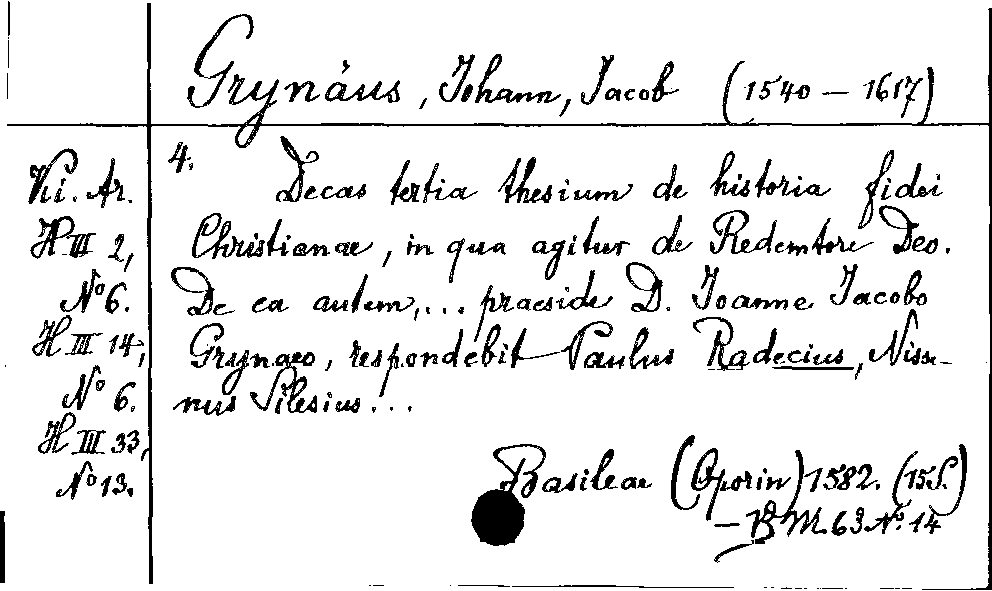 Grynäus, Johann, Jacob (1540 – 1617)
4. Decas tertia thesium de historia fidei
Christianae, in qua agitur de Redemtore Deo.
De ea autem,... praeside D. Joanne Jacobo
Grynaeo, respondebit Paulus Radecius, Nissenus
Silesius...
Basileae (Oporin) 1582. (15S.)
– 63 No. 14
Ki. Ar.
H III 2,
No 6.
H III 14,
No 6.
H III 33,
No 13.